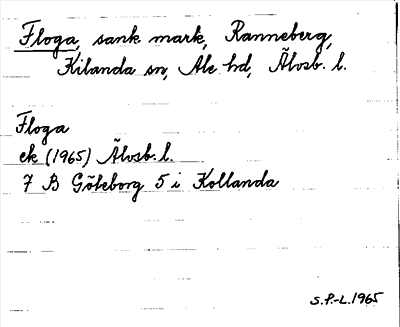 Floga, sank mark, Ranneberg,
Kilanda sn, Ale hd, Älvsb. l.
Floga
ek (1965) Älvsb. l.
7 B Göteborg 5 i Kollanda
S.P.-L. 1965